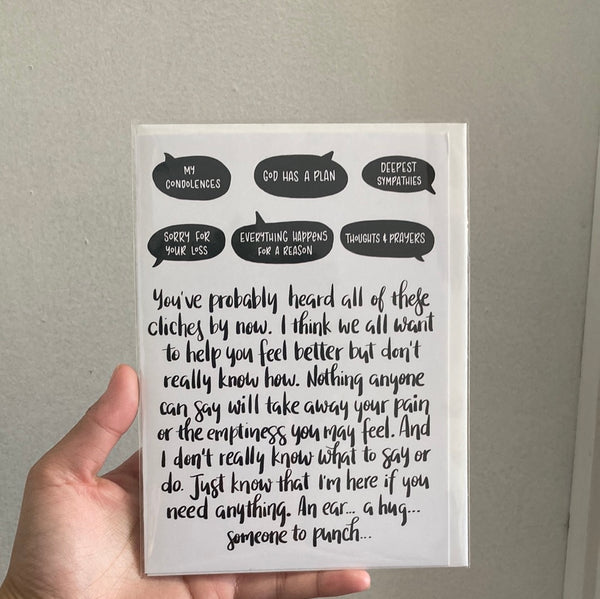 MY
CONDOLENCES
GOD HAS A PLAN
DEEPEST
SYMPATHIES
SORRY FOR
YOUR LOSS
EVERYTHING HAPPENS
FOR A REASON
THOUGHTS & PRAYERS
You've probably heard all of these
cliches by now. I think we all want
to help you feel better but don't
really know how. Nothing anyone
can say will take away your pain
or the emptiness you may feel. And
I don't really know what to say or
do. Just know that I'm here if you
need anything. An ear... a hug...
someone to punch...